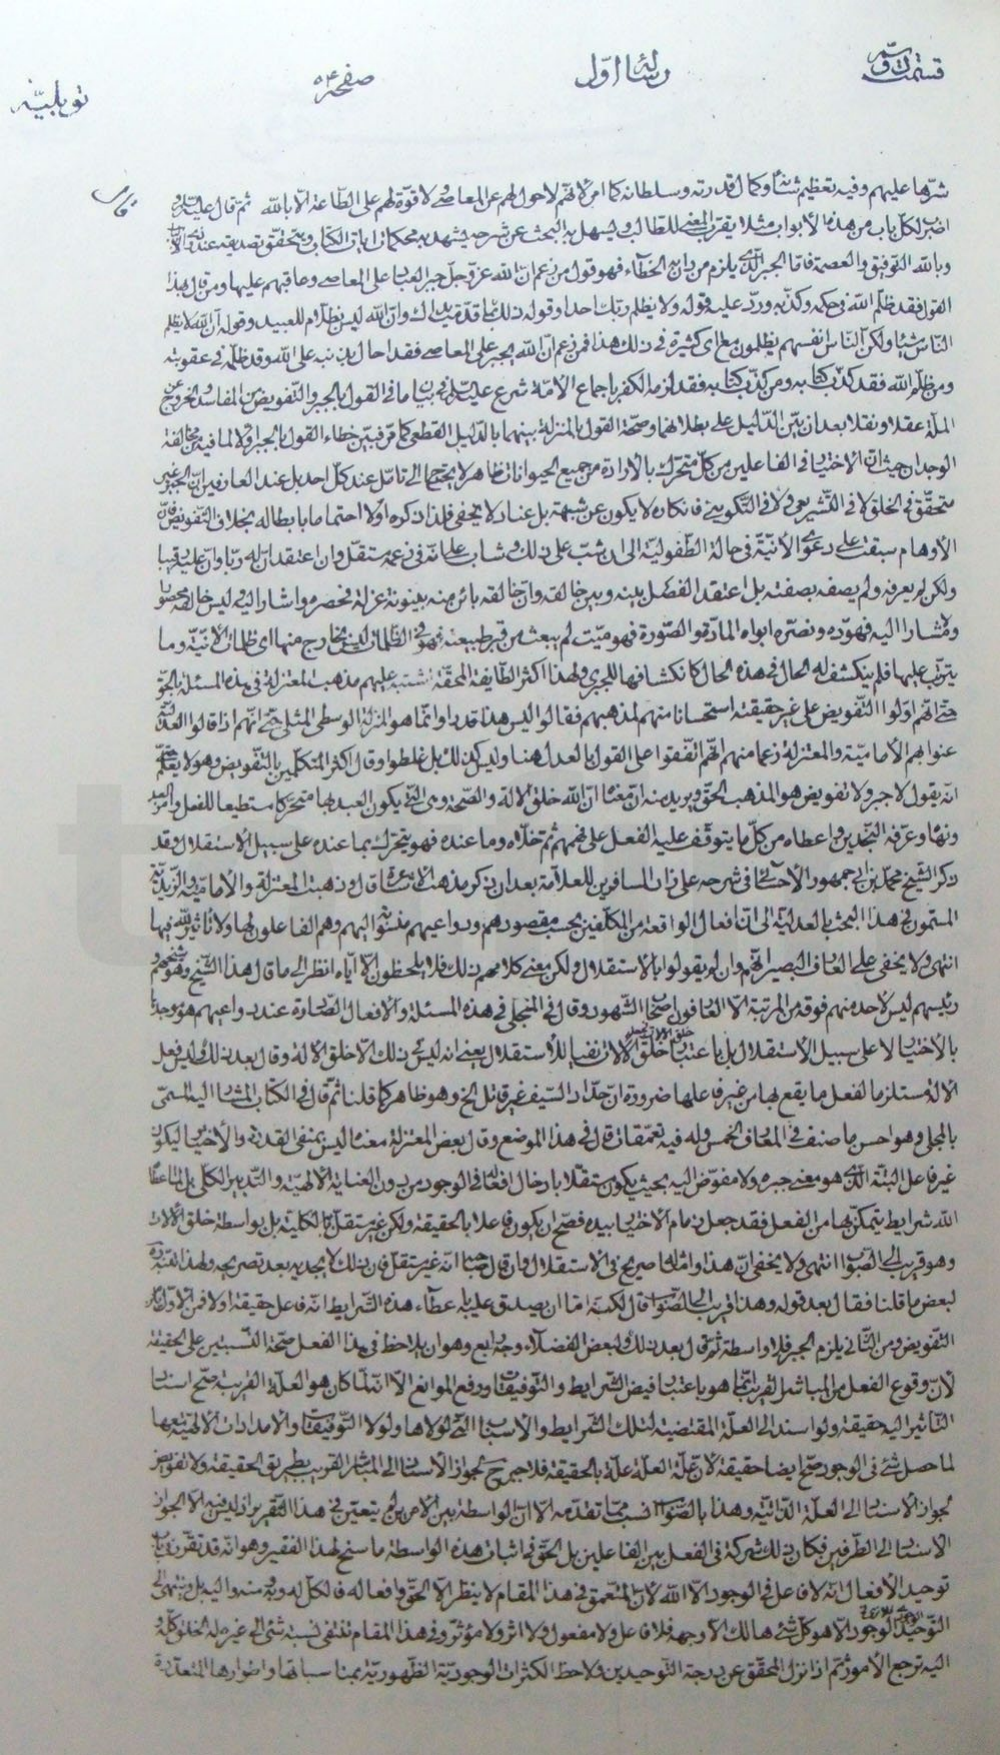 قسمت دوم رسالة اول صفحه ٥٤ توبلیه
شرها عليهم وفيه تعظيم شأنه وكمال قدرته وسلطانه كما امر لانهم لا حول لهم عن المعاصى ولا قوة لهم على الطاعة الا بالله ثم قال عليه السلام و
اضرب لكل باب من هذه الأبواب مثلا يقرب المعنى للطالب ويسهل به البحث عن شرحه يشهد به محكمات ايات الكتاب ويتحقق تصديقه عند ذوى الألباب
وبالله التوفيق والعصمة فاما الجبر الذى يلزم من دان به الخطاء فهو قول من زعم ان الله عز وجل جبر العباد على المعاصى وعاقبهم عليها ومن قال بهذا
القول فقد ظلم الله فى حكمه وكذبه ورد عليه قوله ولا يظلم ربك احدا وقوله ذلك بما قدمت يداك وان الله ليس بظلام للعبيد وقوله ان الله لا يظلم
الناس شيئا ولكن الناس انفسهم يظلمون مع اى كثيرة فى ذلك هذا فمن زعم ان الله اجبر على المعاصى فقد احال بذنبه على الله وقد ظلمه فى عقوبته
ومن ظلم الله فقد كذب كتابه ومن كذب كتابه فقد لزمه الكفر باجماع الأمة شرع عليه السلام فى بيان ما فى القول بالجبر والتفويض من المفاسد والخروج عن
الملة عقلا ونقلا بعد ان بين الدليل على بطلانهما وصحة القول بالمنزلة بينهما بالدليل القطعى كما مر فبين خطاء القول بالجبر اولا لما فيه من مخالفة
الوجدان حيث ان الاختيار فى الفاعلين من كل متحرك بالارادة من جميع الحيوانات ظاهر لا يحتاج الى تامل عند كل احد بل عند العارفين ان الجبر غير
متحقق فى الخلق لا فى التشريعى ولا فى التكوينى فانكاره لا يكون عن شبهة بل عناد لا يخفى فلذا ذكره اولا احتماما بابطاله بخلاف التفويض فان
الأوهام سبقت على دعوى الأنية فى حالة الطفولية الى ان شب على ذلك وشاب على انه فى زعمه مستقل وان اعتقد ان له ربا وان عليه رقيبا
ولكن لم يعرفه ولم يصفه بصفته بل اعتقد الفصل بينه وبين خالقه وان خالقه بائن منه بينونة عزلة فحصره واشار اليه وليس خالقه محصورا
ولا مشارا اليه فهوده ونصره ابواه المادة والصورة فهو ميت لم يبعث من قبر طبيعته فهو فى الظلمات ليس بخارج منها اى ظلمات الأنية وما
يترتب عليها فلم ينكشف له الحال فى هذه الحال كانكشافها للجبرى ولهذا اكثر الطايفة المحقة تشتبه عليهم مذهب المعتزلة فى هذه المسئلة بالحق
حتى انهم اولوا التفويض على غير حقيقته استحسانا منهم لمذهبهم فقالوا ليس هذا قدرا وانما هو المنزلة الوسطى المثلى حتى انهم اذا قالوا العدلية
عنوا بهم الأمامية والمعتزلة زعما منهم انهم اتفقوا على القول بالعدل هنا وليس كذلك بل غلطوا وقال اكثر المتكلمين بالتفويض وهو لا يعلم
انه يقول لا جبر ولا تفويض هو المذهب الحق ويريد منه ان معنا ان الله خلق الالة والصحة وهى التى يكون العبد بها متحركا مستطيعا للفعل وامر العبد
ونهاه وعرفه النجدين واعطاه من كل ما يتوقف عليه الفعل على فهمهم ثم خلاه وما عنده فهو يتحرك بما عنده على سبيل الاستقلال وقد
ذكر الشيخ محمد بن ابى جمهور الأحسائى فى شرحه على زاد المسافرين للعلامة بعد ان ذكر مذهب الاشاعرة قال وذهبت المعتزلة والأمامية والزيدية
المسمون فى هذا البحث بالعدلية الى ان افعال الواقعة من المكلفين بحسب مقصودهم ودواعيهم منسوبة اليهم وهم الفاعلون لها ولا تاثير لله فيها
انتهى ولا يخفى على العارف البصير انهم وان لم يقولوا بالاستقلال ولكن معنى كلامهم ذلك فلا يلحظون الا اياه انظر الى ما قال هذا الشيخ وهو شيخهم و
رئيسهم ليس لأحد منهم فوقه من المرتبة الا العارفون اصحاب الشهود وقال فى المنجلى فى هذه المسئلة والأفعال الصادرة عند دواعيهم هو موجدها
بالأختيار لا على سبيل الأستقلال بل باعتبار خلق الالات نفيا للأستقلال يعنى انه ليس ذلك الا خلق الالة وقال بعد ذلك وليس فعل
الالة مستلزما لفعل ما يقع بها من غير فاعلها ضرورة ان حداد السيف غير قاتل الخ وهو ظاهر كما قلنا ثم قال فى الكتاب المشار اليه المسمى
بالمجلى وهو احسن ما صنف فى المعارف الخمس وله فيه تعمقات قال فى هذا الموضع وقال بعض المعتزلة معنا ليس بمنفى القدرة والأختيار ليكون
غير فاعل البتة الذى هو معنى جبره ولا مفوض اليه بحيث يكون مستقلا بادخال افعاله فى الوجود من دون العناية الالهية والتدبير الكلى بل لما اعطاه
الله شرايط يتمكن بها من الفعل فقد جعل زمام الأختيار بيده فصح ان يكون فاعلا بالحقيقة ولكن غير مستقل بالكلية بل بواسطة خلق الالات
وهو قريب الى الصواب انتهى ولا يخفى ان هذا وامثاله صريح فى الاستقلال وان قال صاحبنا انه غير مستقل فان ذلك لا يجديه بعد تصريحه ولهذا تنبه
لبعض ما قلنا فقال بعد قوله وهذا قريب الى الصواب قال لكنه اما ان يصدق عليه باعطاء هذه الشرايط انه فاعل حقيقة اولا فمن الاول يلزم
التفويض ومن الثانى يلزم الجبر فلا واسطة ثم قال بعد ذلك ولبعض الفضلاء وجه رابع وهو ان يلاحظ فى هذا الفعل صحة النسبتين على الحقيقة
لأن وقوع الفعل من المباشر القريب انما هو باعتبار فيض الشرايط والتوفيقات ورفع الموانع الا انه لما كان هو العلة القريبة صح اسناد
التأثير اليه حقيقة ولو اسند الى العلة المقتضية لتلك الشرايط والأسباب التى لولاها ولولا التوفيقات والأمدادات الألهية معها
لما حصل شئ فى الوجود صح ايضا حقيقة لأن علة العلة علة بالحقيقة فلا جبر ح لجواز الأسناد الى المباشر القريب بطريق الحقيقة ولا تفويض
لجواز الأسناد الى العلة الذاتية وهذا بالصواب انسب مما تقدمه الا ان الواسطة بين الامرين لم يتعين فى هذا التقرير اذ ليس فيه الا جواز
الأسناد الى الطرفين فكان ذلك شركة فى الفعل بين الفاعلين بل الحق فى اثبات هذه الواسطة ما سنح لهذا الفقير وهو انه قد تقرر فى باب
توحيد الأفعال انه لا فاعل فى الوجود الا الله لأن المتعمق فى هذا المقام لا ينظر الا الحق وافعاله فالكل له وبه ومنه واليه بل وينتهى الى
التوحيد الوجودى الا هو كل شئ هالك الا وجهه فلا فاعل ولا مفعول ولا اثر ولا مؤثر وفى هذا المقام تنتفى نسبة شئ الى غيره له الخلق كله
اليه ترجع الأمور ثم اذا نزل المحقق عن درجة التوحيدين ولاحظ الكثرات الوجودية الظهورية بمناسباتها واضوارها المتعددة